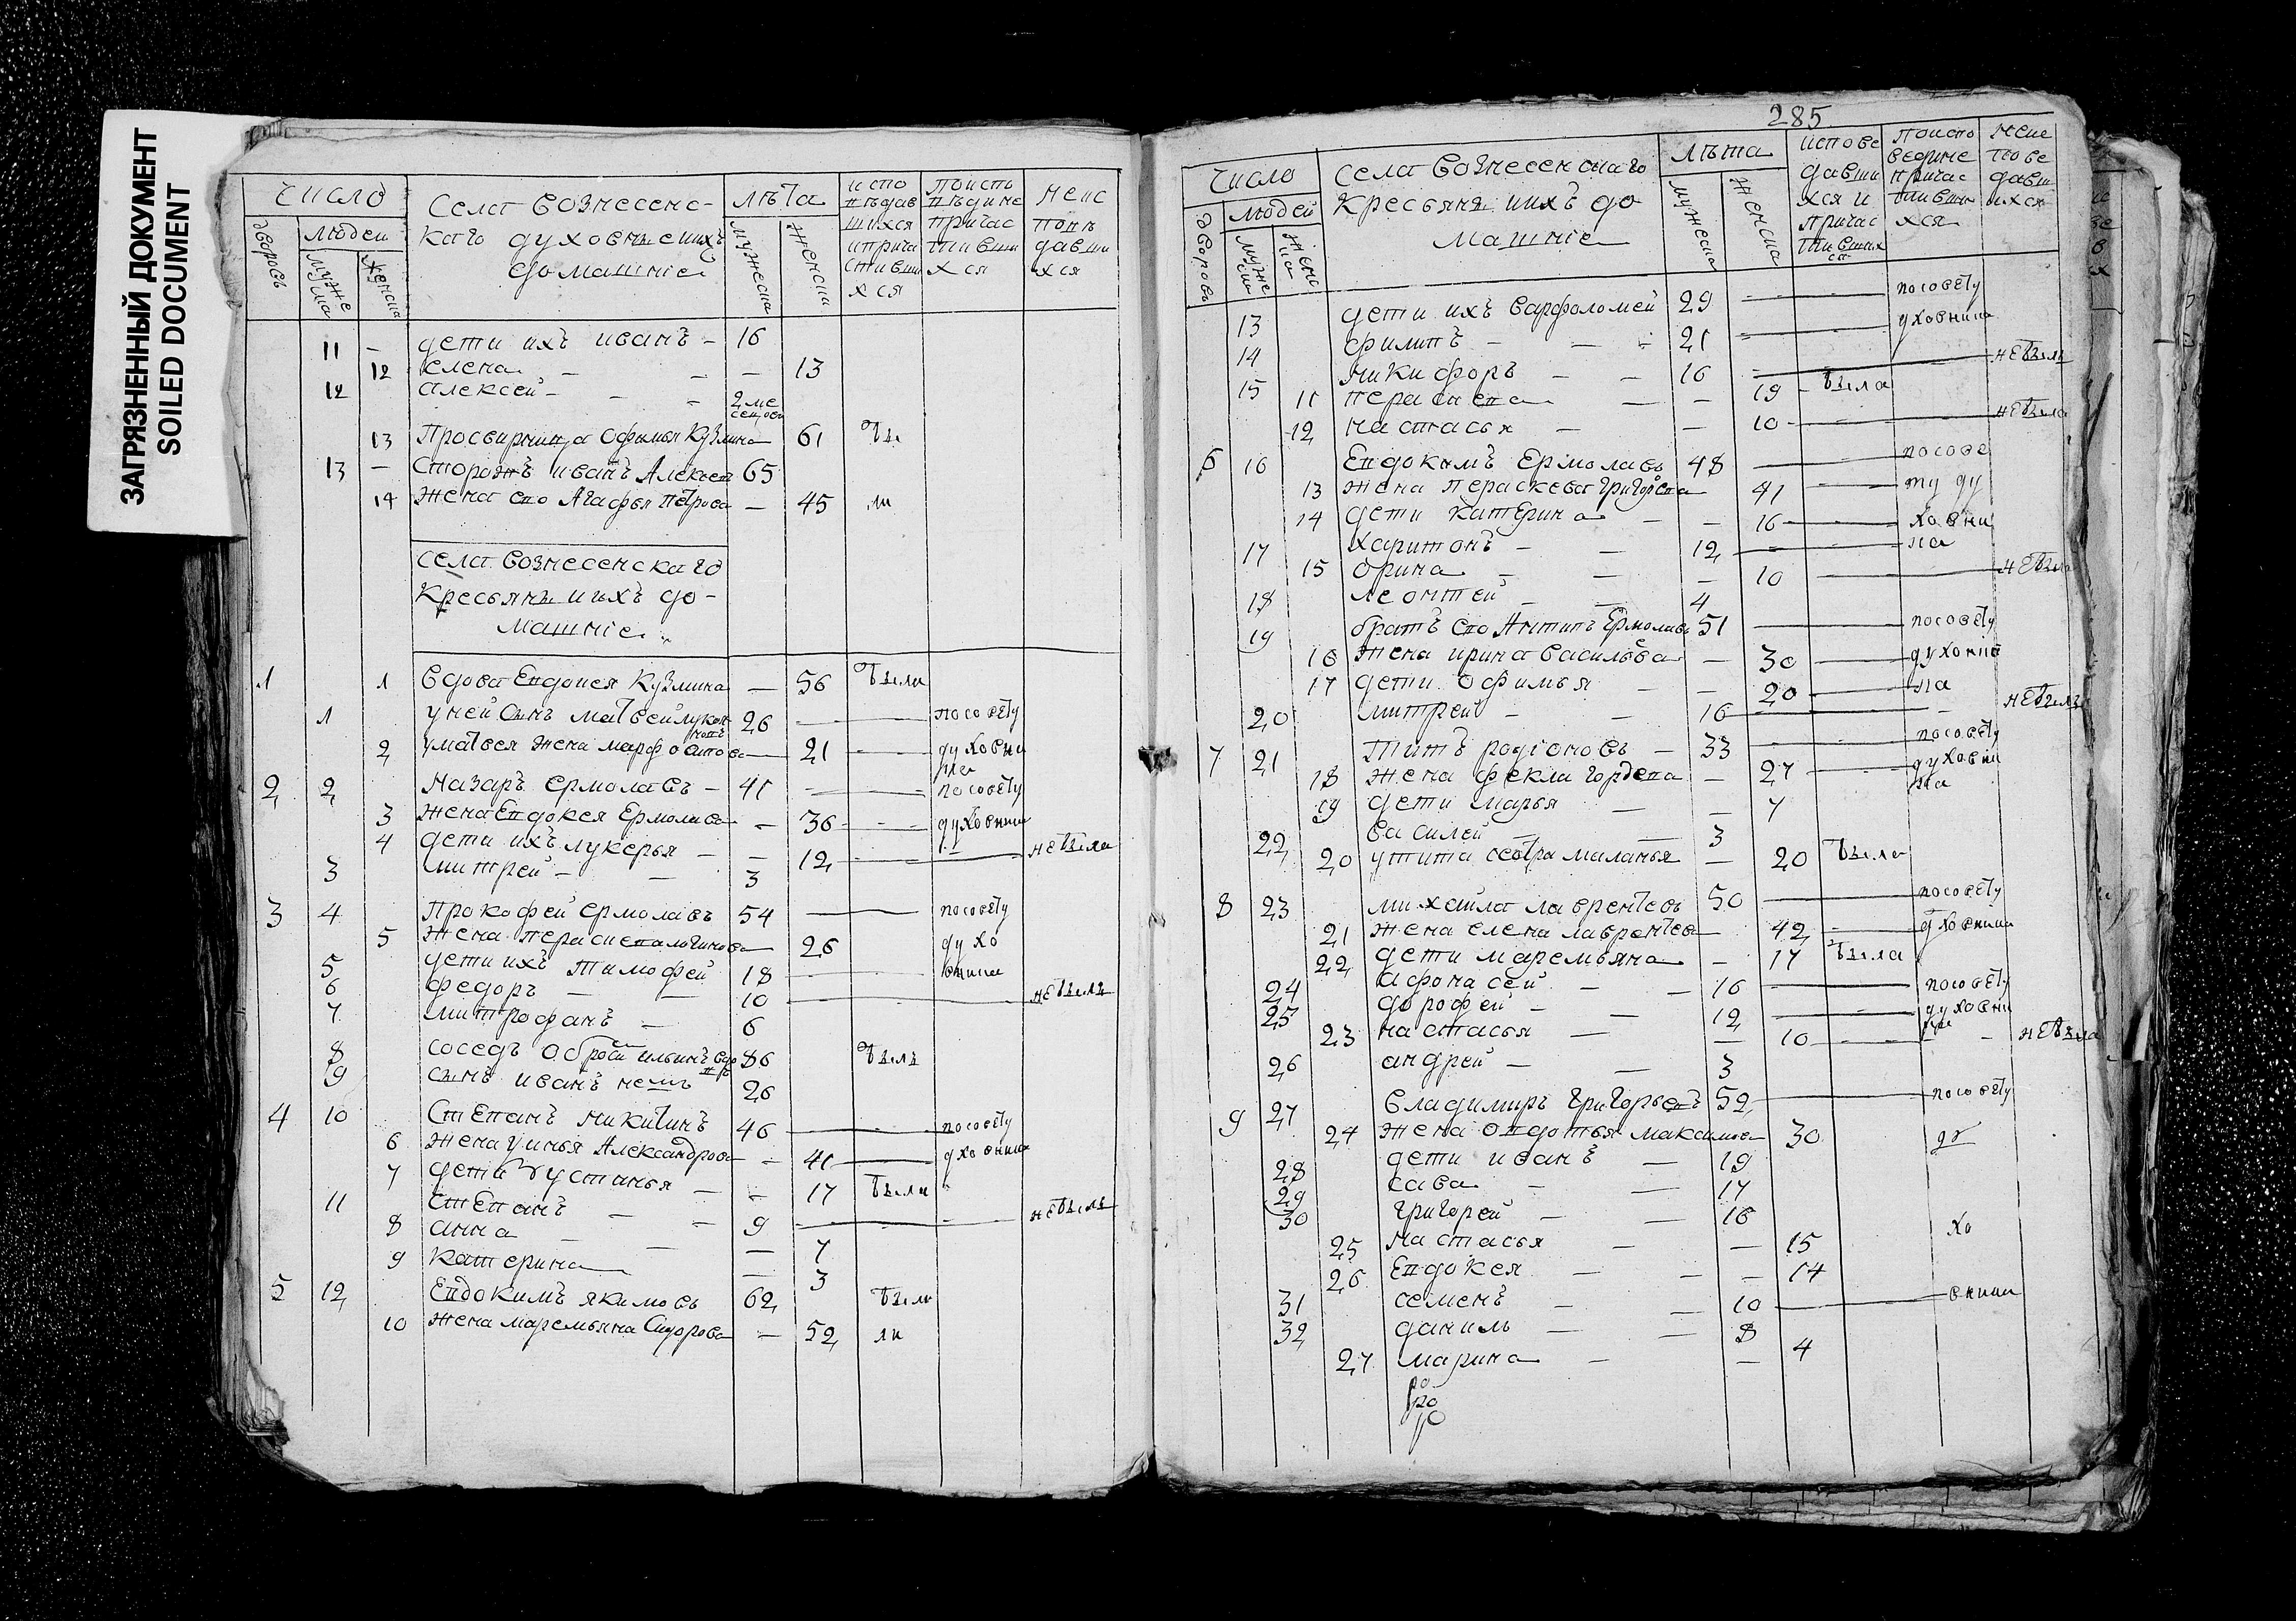 ЗАГРЯЗНЕННЫЙ ДОКУМЕНТ
SOILED DOCUMENT
число
дворовъ
людеи
муже
ска
женска
села вознесенс-
каго духовные ихъ
домашніе
лѣта
мужеска
женска
испо
вѣдав
шихся
и прича
стивши
хся
поиспо
вѣдине
причас
тивши
хся
неис
повѣ
давши
хся
11 - дети ихъ иванъ - 16
12 елена - - 13
12 алексеи - - 2 ме
сецовъ
13 Просвирница офимья Кузмина 61 бы
13 - Сторожъ иванъ Алексеев 65
14 жена ево Агафья Петрова - 45 ли
села вознесенскаго
Кресьянъ и ихъ до-
машніе
1 1 вдова Евдокея Кузмина - 56 были
1 у ней сынъ матвей лукоя
новъ 26 посовету
2 у матвея жена марфа аитова 21 духовни
ка
2 2 назаръ ермолаевъ - 41 посовету
3 жена Евдокея Ермолаева - 36 духовника
4 дети ихъ лукерья - - 12 не была
3 митреи - - 3
3 4 Прокофеи ермолаевъ 54 посовету
5 жена парасковя логинова 26 духо
5 дети ихъ тимофеи 18 вника
6 федоръ - - 10 не былъ
7 митрофанъ - 6
8 соседъ ильинъ вдо
въ 86 былъ
9 сынъ иванъ немъ 26
4 10 Степанъ микитинъ 46 посовету
6 жена улинья Александрова - 41 духовника
7 дети устинья - - 17 была
11 степанъ - - 9 не былъ
8 анна - - 7
9 катерина - 3
5 12 Евдокимъ якимовъ 62 бы
10 жена маремьяна Сидорова - 52 ли
285
число
дворовъ
людеи
муже
ска
женс
ка
села вознесенскаго
Кресьяня и ихъ до
машніе
лѣта
мужеска
женска
испове
давши
хся и
причас
тивших
ся
поиспо
ведине
причас
тивши
хся
неис
пове
давши
ихся
13 дети ихъ варфоломеи 29 посовету
14 филипъ - - - 21 духовника
15 никифоръ - - 16 не былъ
11 пераскева - - 19 - была
12 настасья - - 10 не была
6 16 Евдокимъ Ермолаевъ 48 посове
13 жена пераскева григорева 41 ту ду
14 дети катерина - - 16 ховни
17 харитонъ - - 12 ка
15 орина - - - 10 не была
18 леонтеи - - 4
19 братъ ево Антипъ Ермолаевъ 51 посовету
16 жена ирина васильева - 30 духовни
17 дети офимья - - 20 ка
20 митреи - - 16 не былъ
7 21 Титъ родіоновъ - 33 посовету
18 жена фекла гордеева - 27 духовни
ка
19 дети марья - - 7
22 василеи - - 3
20 у тита сестра маланья - 20 была
8 23 михаила лаврентевъ 50 посовету
21 жена елена лаврентева 42 духовника
22 дети маремьяна - 17 была
24 афонасеи - - 16 посовету
25 дорофеи - - 12 духовни
ка
23 настасья - - 10 - - не была
26 андреи - - 3
9 27 владимиръ григорьевъ 52 посовету
24 жена овдотья максимова 30 ду
28 дети иванъ - 19
29 сава - - 17
30 григореи - - 16
25 настасья - - 15 хо
26 Евдокея - - - 14
31 семенъ - - 10 вника
32 данилъ - - 8
27 марина - - 4